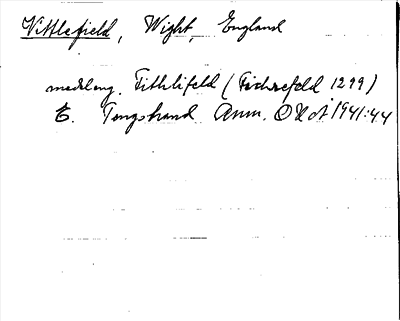 Vittlefield, Wight, England
medeleng. Fithlifeld ( 1299)
E. Tengstrand Anm. 1941:44